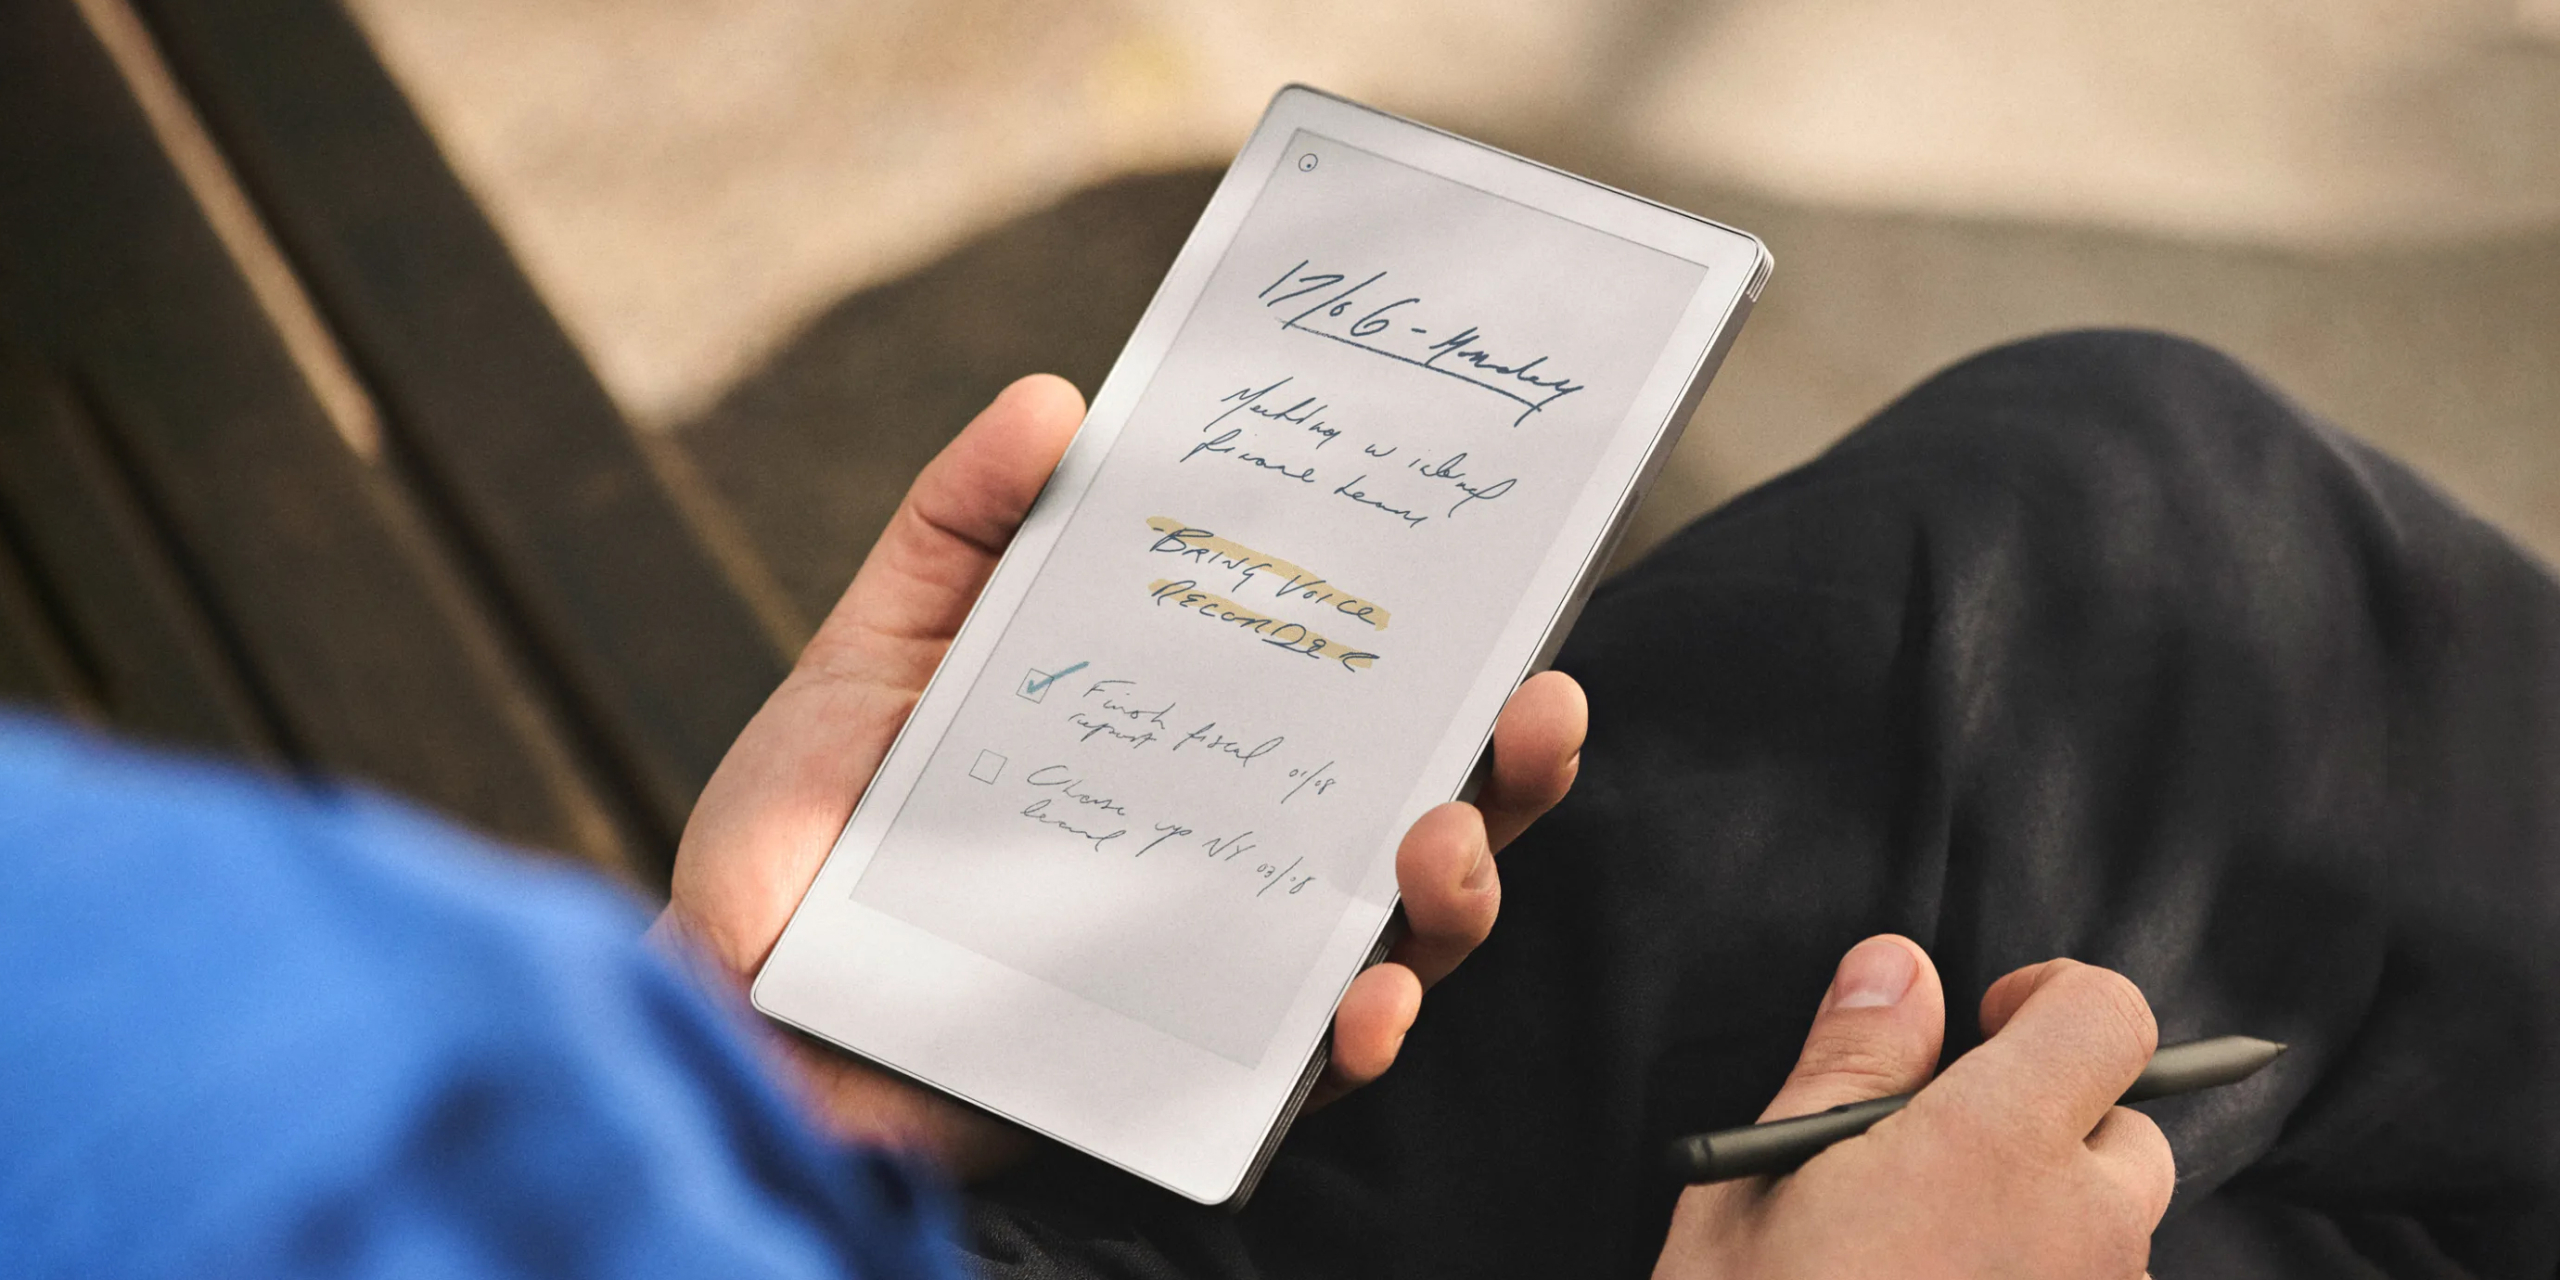 17/06 - Monday
Meeting w internal
finance team
- BRING VOICE
RECORDER
Finish fiscal 01/08
report
Chase up NY 03/08
lead